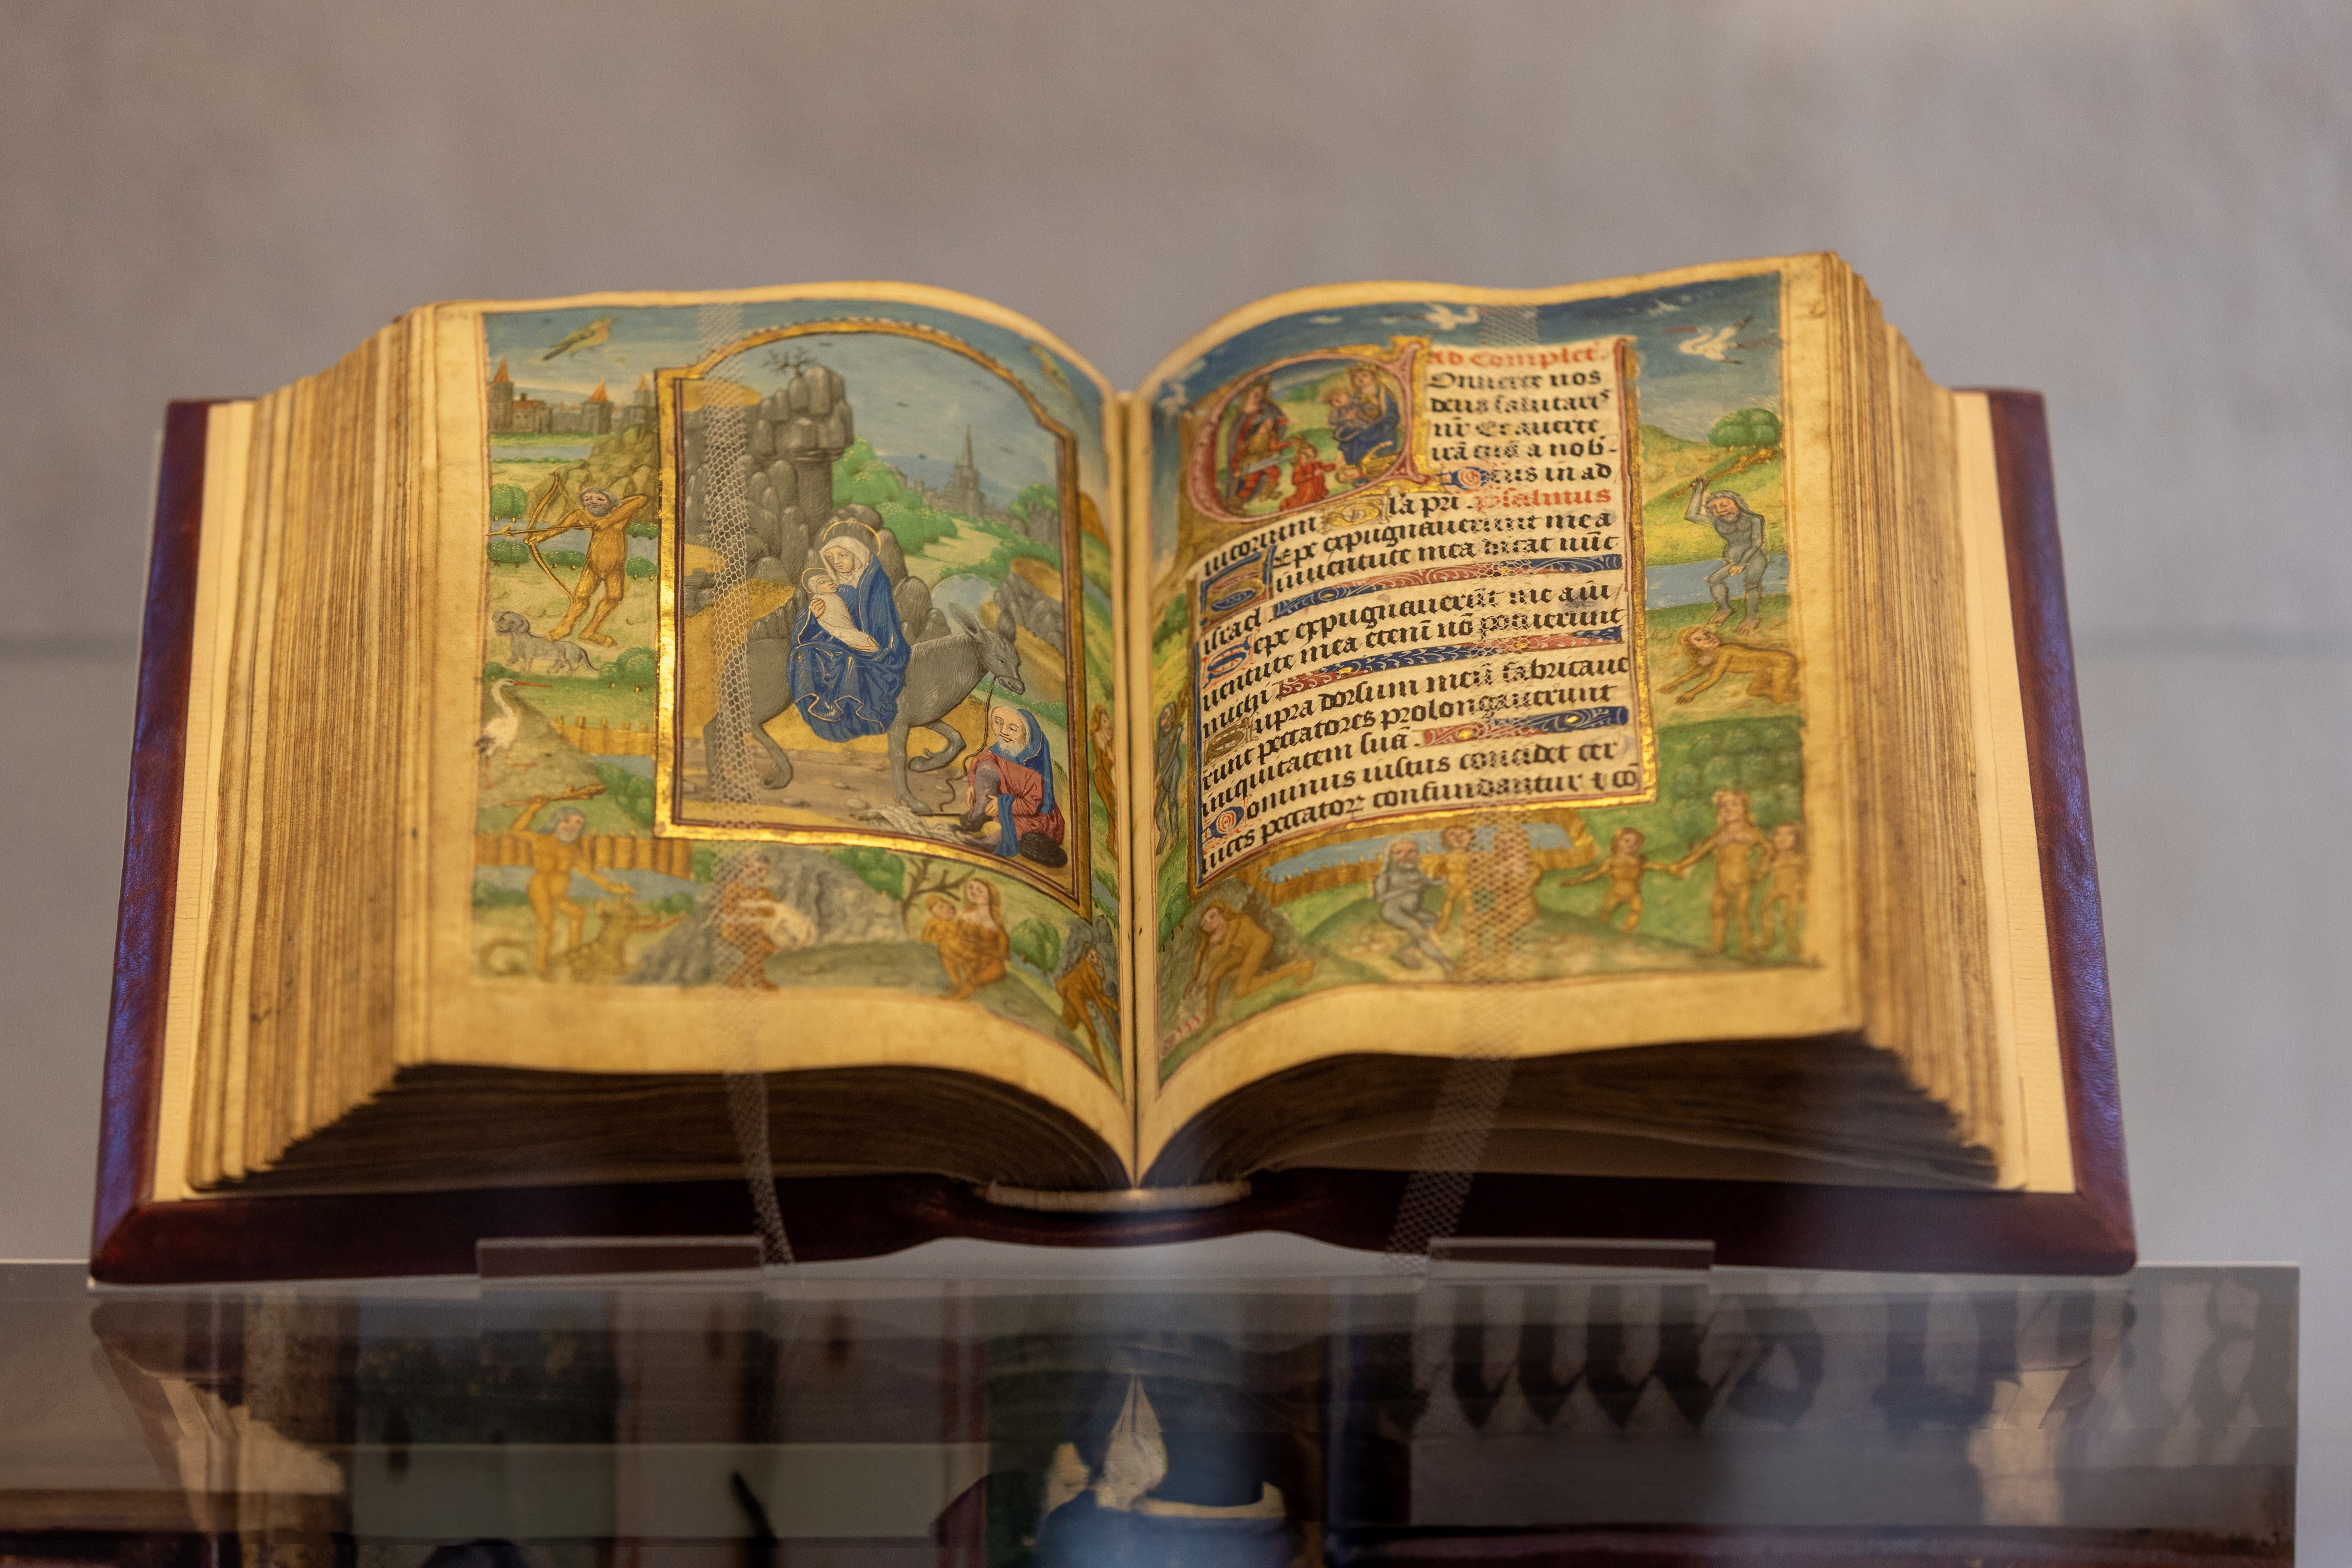 ad Complet.
Onuerte nos
deus salutaris
nr̄ Et auerte
irā tuā a nob̄
Deus in ad
iutorium la pri. psalmus
Sepe expugnauerunt me a
iuuentute mea dicat nūc
israel
Sepe expugnauerūt me a iu
uentute mea etenī nō potuerunt
michi
Supra dorsum meū fabricaue
runt peccatores prolongauerunt
iniquitatem suā.
Dominus iustus concidet cer
uices peccatoꝝ confundantur ⁊ cō